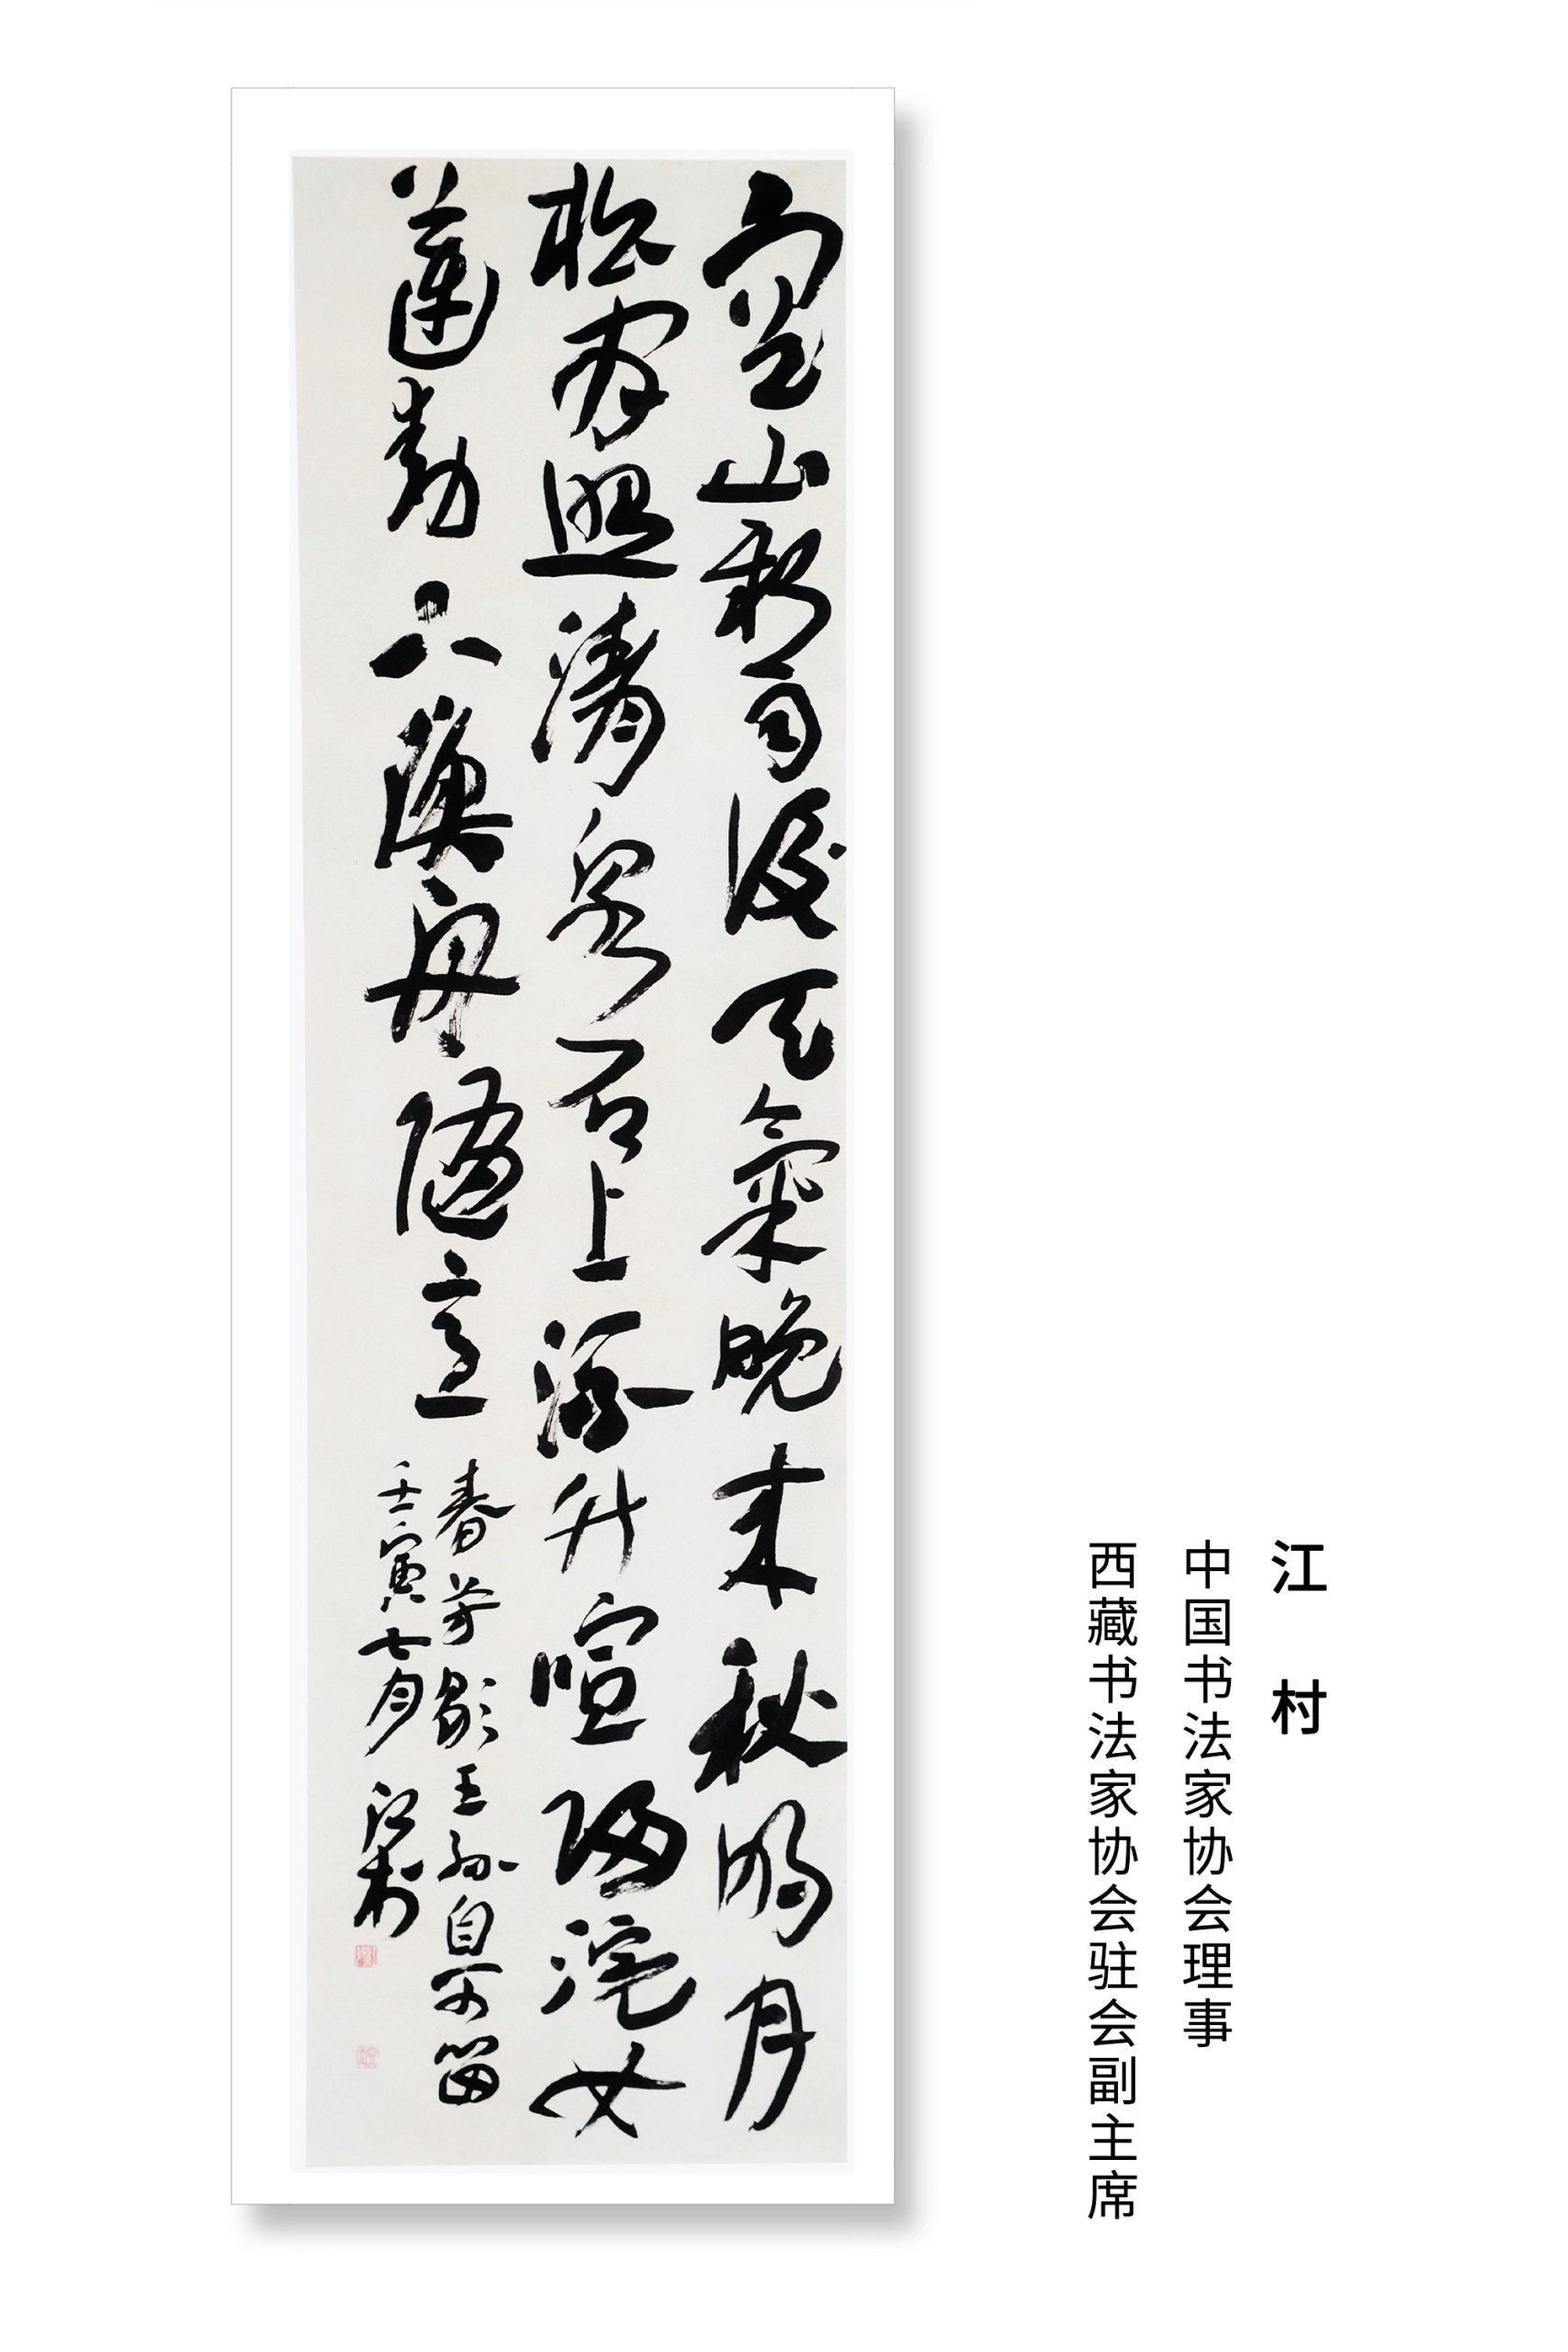 江村
中国书法家协会理事
西藏书法家协会驻会副主席
空山新雨後天氣晚来秋明月
松間照清泉石上流竹喧歸浣女
蓮動下漁舟隨意
春芳歇王孫自可留
壬寅七月江村